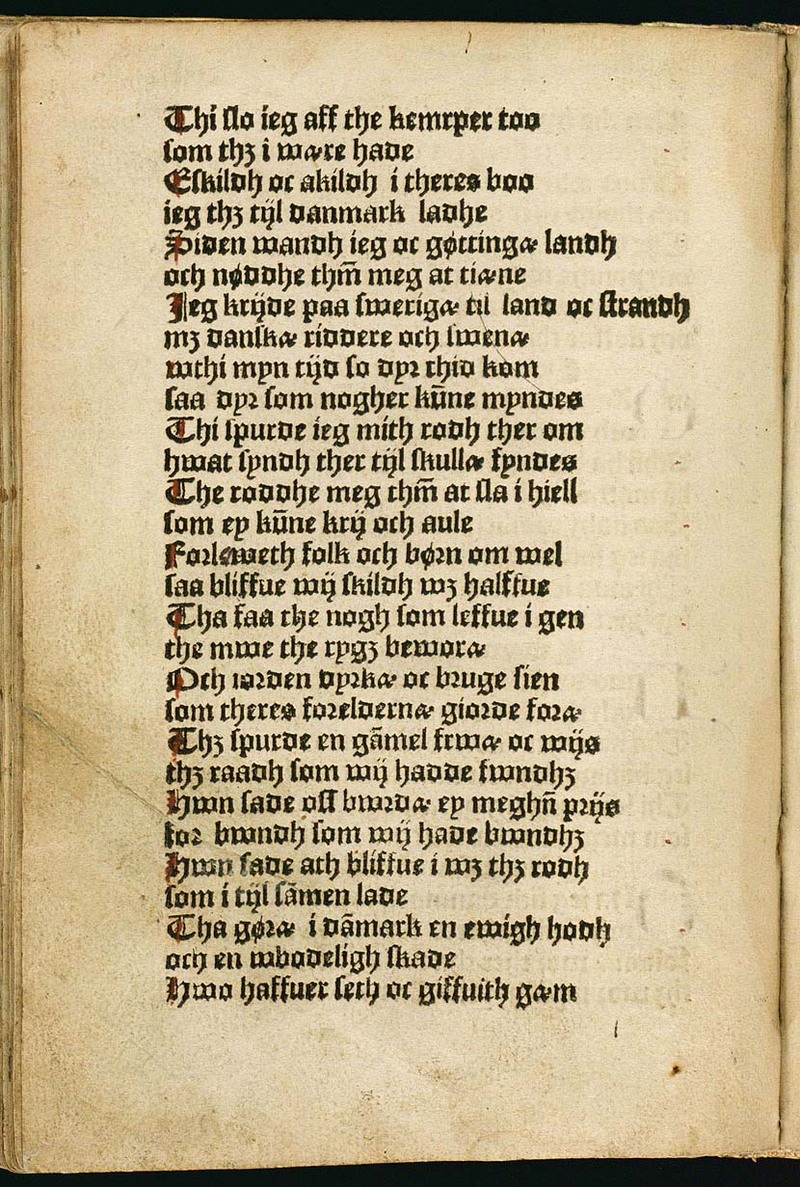 Thi slo ieg aff the kemrper too
som thꝫ i wære hade
Eskildh oc akildh i theres boo
ieg thꝫ tijl danmark ladhe
Siden wandh ieg oc gøttingæ landh
och nøddhe thm̄ meg at tiæne
Jeg krijde paa swerigæ til land oc strandh
mꝫ danskæ riddere och swenæ
wthi myn tijd so dyꝛ thid kom
saa dyꝛ som nogher kūne myndes
Thi spurde ieg mith rodh ther om
hwat syndh ther tijl skullæ fyndes
The roddhe meg thm̄ at sla i hiell
som ey kūne krij och aule
Foꝛleweth folk och bøꝛn om wel
saa bliffue wij skildh wꝫ halffue
Tha faa the nogh som leffue i gen
the mwe the rygꝫ beworæ
Och ioꝛden dyꝛkæ oc bꝛuge sien
som theres foꝛeldernæ gioꝛde foꝛæ
Thꝫ spurde en gāmel frwæ oc wijs
thꝫ raadh som wij hadde fwndhꝫ
Hwn sade oss bwꝛdæ ey meghn̄ pꝛijs
foꝛ bwndh som wij hade bwndhꝫ
Hwn sade ath bliffue i wꝫ thꝫ rodh
som i tijl sāmen lade
Tha gøꝛæ i dāmark en ewigh hodh
och en wbodeligh skade
Hwo haffuer seth oc giffuith gæm